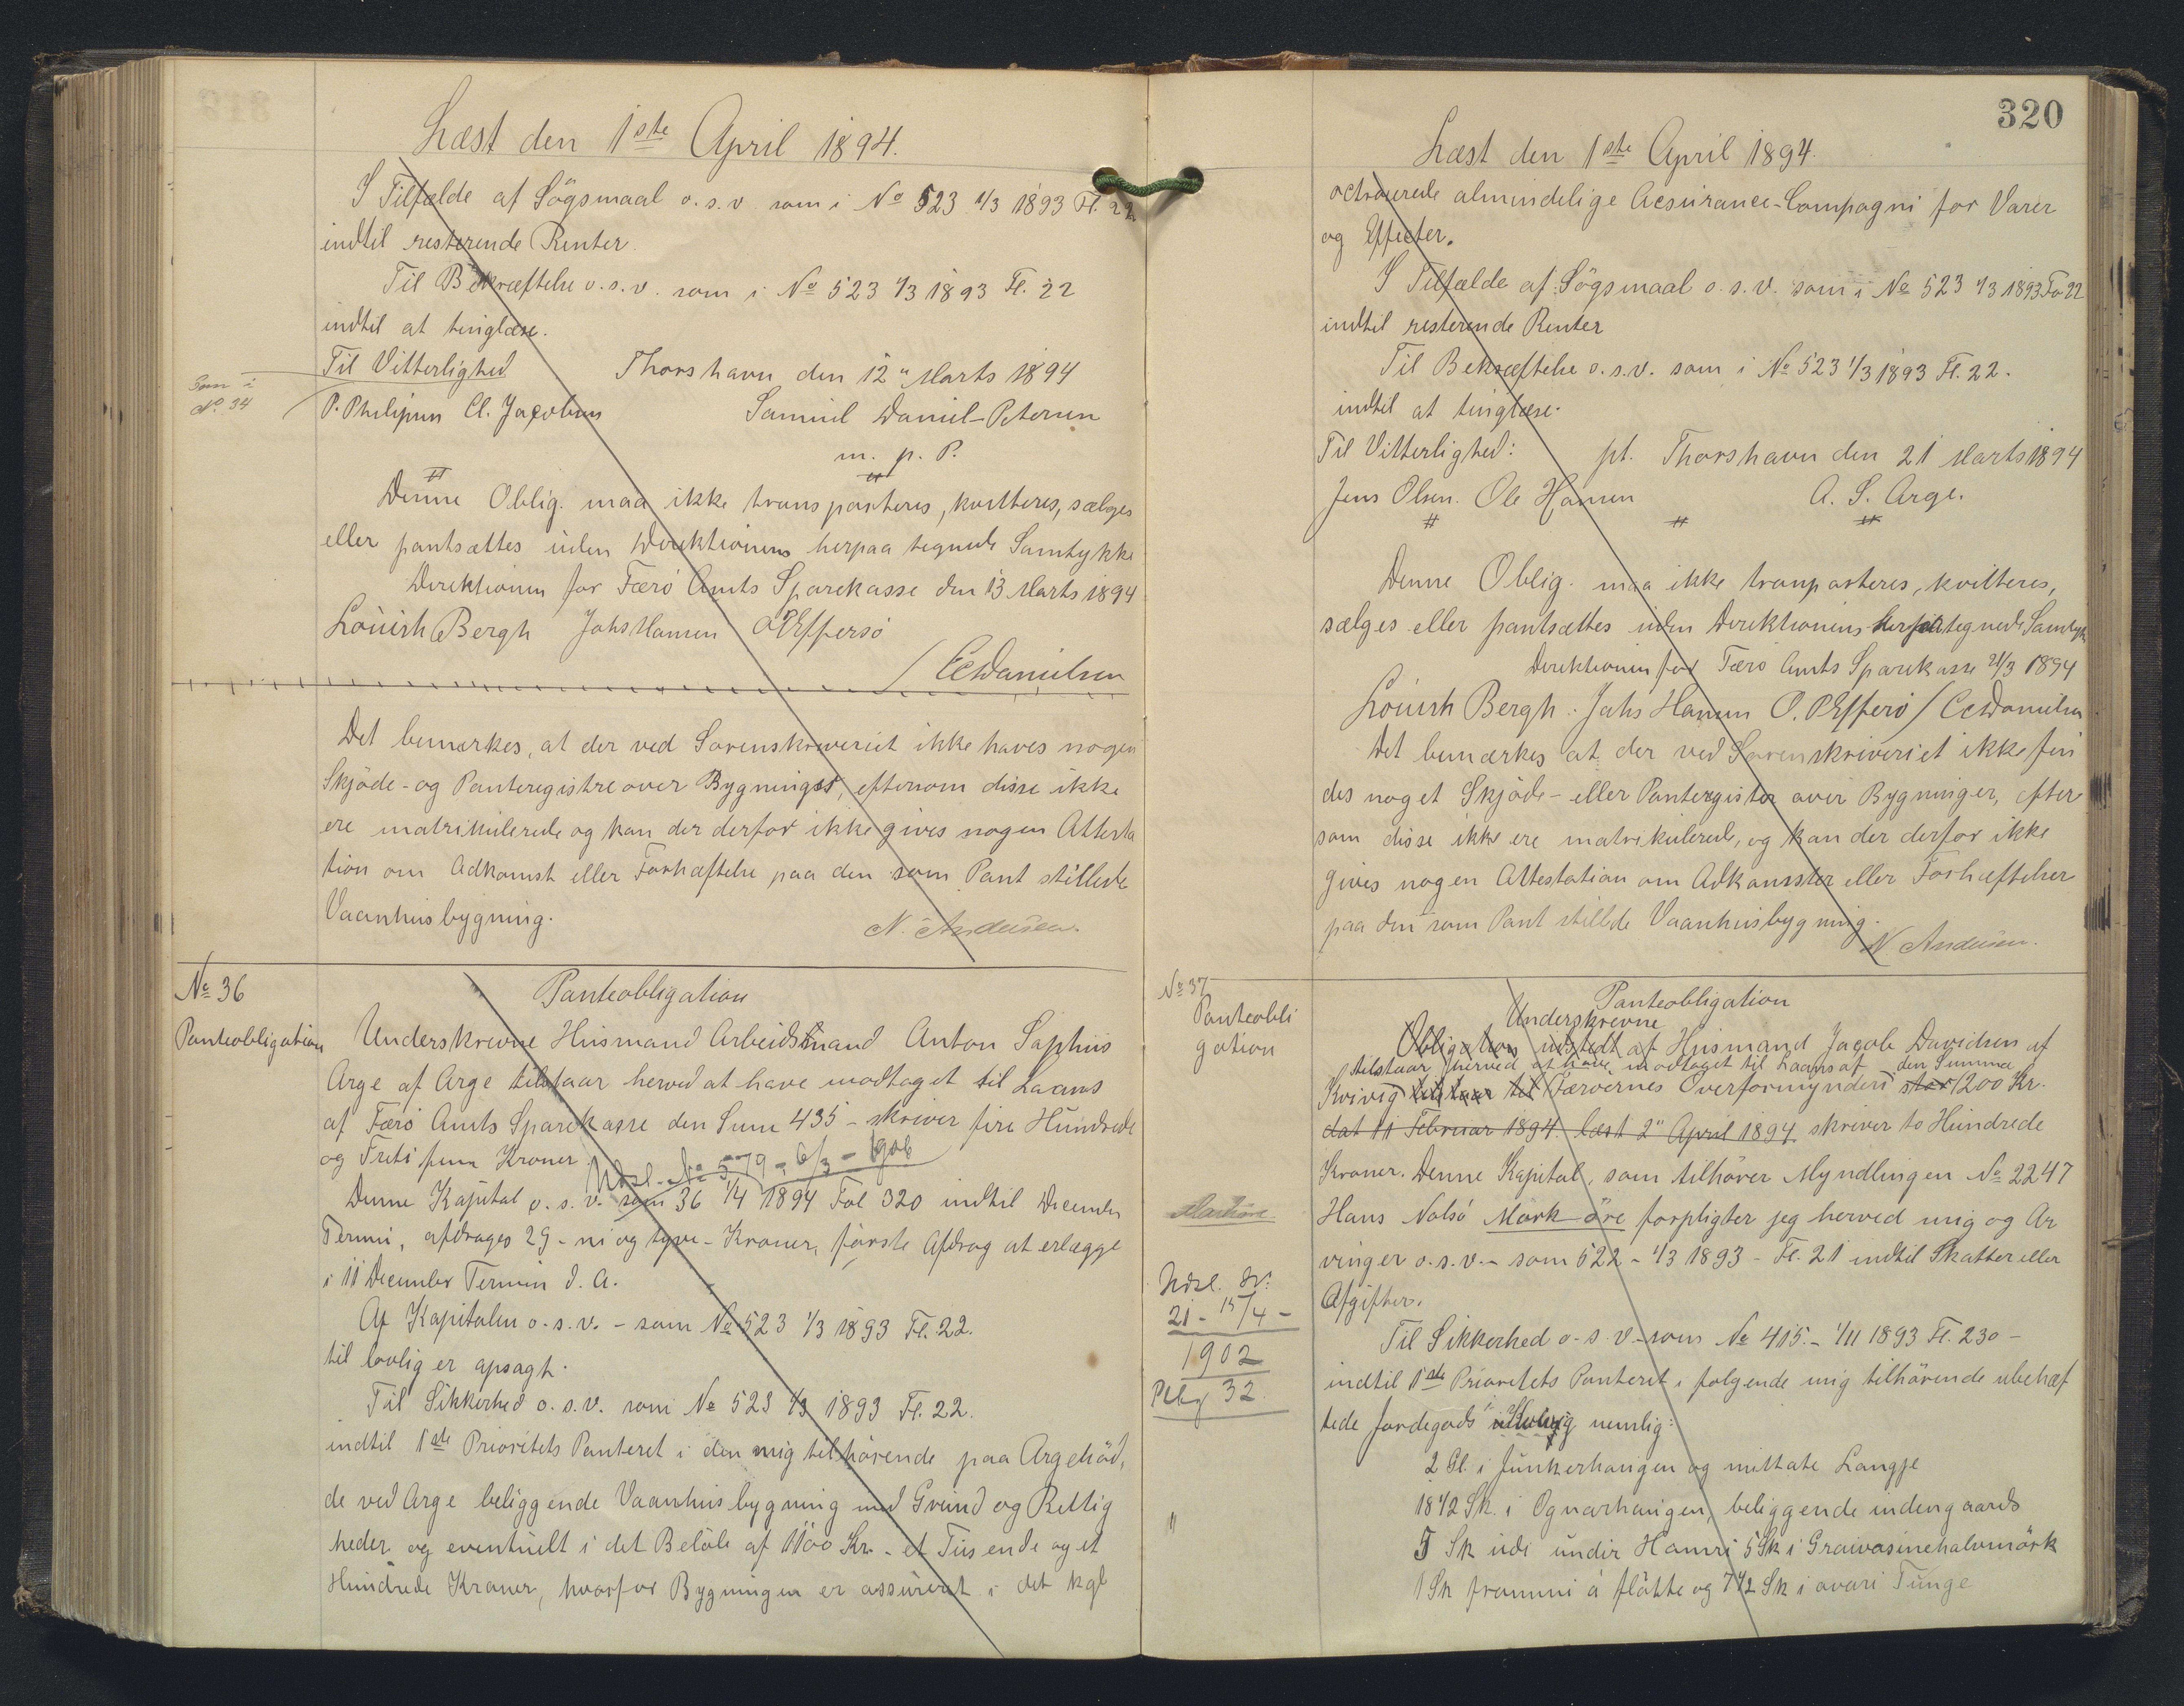 Læst den 1ste April 1894.
I Tilfælde af Sögsmaal o.s.v. som i No 523 1/3 1893 Fl. 22
indtil resterende Renter.
Til Bekræftelse o.s.v. som i No 523 1/3 1893 Fl. 22
indtil at tinglæse.
Til Vitterlighed Thorshavn den 12" Marts 1894
Som i
No 34
P. Philipsen Cl. Jacobsen Samuel Daniel-Petersen
m. p. P.
Denne Oblig. maa ikke transporteres, kvitteres, sælges
eller pantsættes uden Direktionens herpaa tegnede Samtykke
Direktionen for Færö Amts Sparekasse den 13 Marts 1894
Louish Bergh Johs Hansen O P Effersö
/ CC Danielsen
Det bemærkes, at der ved Sorenskriveriet ikke haves nogen
Skjöde- og Panteregistre over Bygninger, eftersom disse ikke
ere matrikulerede og kan der derfor ikke gives nogen Attesta
tion om Adkomst eller Forhæftelse paa den som Pant stillede
Vaanhusbygning.
N. Andersen.
No 36
Panteobligation
Panteobligation
Underskrevne Husmand Arbeidsmand Anton Saphus
Arge af Arge tilstaar herved at have modtaget til Laans
af Færö Amts Sparekasse den Sum 435 - skriver fire Hundrede
og Treti fem Kroner.
Udsl. No 579 - 6/3 - 1906
Denne Kapital o.s.v. som 36 1/4 1894 Fol 320 indtil December
Termin, afdrages 29 - ni og tyve - Kroner, förste Afdrag at erlægge
i 11 December Termin d. A.
Af Kapitalen o.s.v. - som No 523 1/3 1893 Fl. 22.
til lovlig er opsagt.
Til Sikkerhed o.s.v. som No 523 1/3 1893 Fl. 22.
indtil 1ste Prioritets Panteret i den mig tilhörende paa Argehöd,
de ved Arge beliggende Vaanhusbygning med Grund og Rettig
heder og eventuelt i det Belöb af 1100 Kr. - et Tusende og et
Hundrede Kroner, hvorfor Bygningen er assureret i det kgl
320
Læst den 1ste April 1894.
octroierede almindelige Acsurance-Compagni for Varer
og Effecter.
I Tilfælde af Sögsmaal o.s.v. som i No 523 1/3 1893 Fo 22
indtil resterende Renter
Til Bekræftelse o.s.v. som i No 523 1/3 1893 Fl. 22.
indtil at tinglæse.
Til Vitterlighed: pt. Thorshavn den 21 Marts 1894
Jens Olsen. Ole Hansen A. S. Arge.
Denne Oblig. maa ikke transporteres, kvitteres,
sælges eller pantsættes uden Direktionens herpaa tegnede Samtykke
Direktionen for Færö Amts Sparekasse 21/3 1894
Louish Bergh. Johs Hansen O. P Effersö / CC Danielsen
Det bemærkes at der ved Sorenskriveriet ikke fin
des noget Skjöde- eller Panteregister over Bygninger, efter
som disse ikke ere matrikulerede, og kan der derfor ikke
gives nogen Attestation om Adkomster eller Forhæftelser
paa den som Pant stillede Vaanhusbygning.
N Andersen.
No 37
Panteobli
gation
Panteobligation
Underskrevne
Obligation udstedt af Husmand Jacob Davidsen af
tilstaar herved at have modtaget til Laans af den Summa
Kvivig tilstaar til Færöernes Overformynderi stor 200 Kr.
dat 11 Februar 1894 læst 2" April 1894 skriver to Hundrede
Kroner. Denne Kapital, som tilhörer Myndlingen No 2247
Hans Nolsö Mörk öre forpligter jeg herved mig og Ar
vinger o.s.v. - som 522 - 1/3 1893 - Fl. 21 indtil Skatter eller
Afgifter.
Udsl. Nr.
21 - 15/4 -
1902
Ptbg 32.
Til Sikkerhed o.s.v. som No 415 - 1/11 1893 Fl. 230 -
indtil 1ste Prioritets Panteret i fölgende mig tilhörende ubehæf
tede Jordegods nemlig:
2 Gl. i Junkerhaugen og mittate Langje
18 1/2 Sk. i Ognarhaugen, beliggende indengaards
5 Sk udi undir Hamri 5 Sk i Graivasinehalvmörk
1 Sk frammi á fløtte og 7 1/2 Sk i ovari Tunge